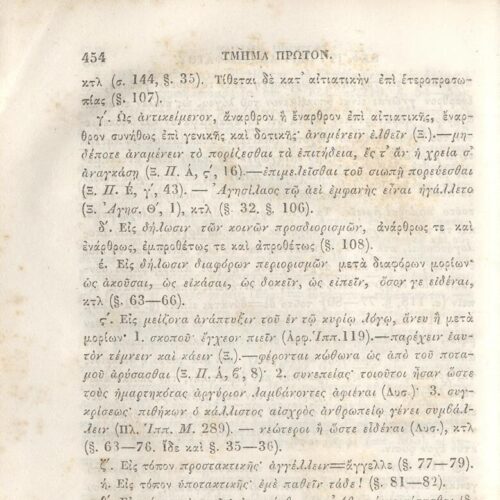 454 ΤΜΗΜΑ ΠΡΩΤΟΝ.
κτλ (σ. 144, §. 35). Τίθεται δὲ κατ' αἰτιατικὴν ἐπὶ ἑτεροπροσω-
πίας (§. 107).
γ΄. Ὡς ἀντικείμενον, ἄναρθρον ἢ ἔναρθρον ἐπὶ αἰτιατικῆς, ἔναρ-
θρον συνήθως ἐπὶ γενικῆς καὶ δοτικῆς· ἀναμένειν ἐλθεῖν (Ξ.).—μη-
δέποτε ἀναμένειν τὸ πορίζεσθαι τὰ ἐπιτήδεια, ἔς τ' ἂν ἡ χρεία σ'
ἀναγκάσῃ (Ξ. Π. Ά, ς΄, 16).—ἐπιμελεῖσθαι τοῦ σιωπῇ πορεύεσθαι
(Ξ. Π. Έ, γ΄, 43). — Ἀγησίλαος τῷ ἀεὶ ἐμφανὴς εἶναι ἠγάλλετο
(Ξ. Ἀγησ. Θ΄, 1), κτλ (§. 32, §. 106).
δ΄. Εἰς δήλωσιν τῶν κοινῶν προσδιορισμῶν, ἀνάρθρως τε καὶ
ἐνάρθρως, ἐμπροθέτως τε καὶ ἀπροθέτως (§. 108).
έ. Εἰς δήλωσιν διαφόρων περιορισμῶν μετὰ διαφόρων μορίων·
ὡς ἀκοῦσαι, ὡς εἰκάσαι, ὡς δοκεῖν, ὡς εἰπεῖν, ὅσον γε εἰδέναι,
κτλ (§. 63—66).
ς΄. Εἰς μείζονα ἀνάπτυξιν τοῦ ἐν τῷ κυρίῳ λόγῳ, ἄνευ ἢ μετὰ
μορίων· 1. σκοποῦ· ἔγχεον πιεῖν (Ἀρφ. Ἱππ. 119).—παρέχειν ἑαυ-
τὸν τέμνειν καὶ κάειν (Ξ.).—φέρονται κώθωνα ὡς ἀπὸ τοῦ ποτα-
μοῦ ἀρύσασθαι (Ξ. Π. Ά, β΄, 8)· 2. συνεπείας· τοιοῦτοι ἦσαν ὥστε
τοὺς ἡμαρτηκότας ἀργύριον λαμβάνοντες ἀφιέναι (Λυσ.)· 3. συγ-
κρίσεως· πιθήκων ὁ κάλλιστος αἰσχρὸς ἀνθρωπείῳ γένει συμβάλ-
λειν (Πλ. Ἱππ. Μ. 289). — νεώτεροι ἢ ὥστε εἰδέναι (Λυσ.), κτλ
(§. 63—76. Ἴδε καὶ §. 35—36).
ζ΄. Εἰς τόπον προστακτικῆς· ἀγγέλλειν=ἄγγελλε (§. 77—79).
ή. Εἰς τόπον ὑποτακτικῆς· ἐμὲ παθεῖν τάδε! (§. 81—82).